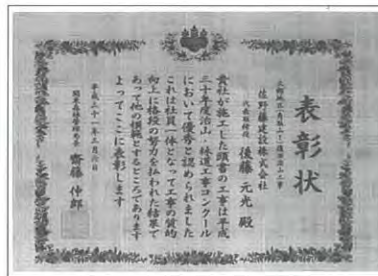 表彰状
佐野藤建設株式会社
代表取締役 後藤 元光 殿
貴社が施工した頭書の工事は平成
三十年度治山・林道工事コンクール
において優秀と認められました
これは社員一体となって工事の質的
向上に格段の努力を払われた結果で
あって他の模範とするところであります
よってここに表彰します
平成三十一年三月六日
関東森林管理局長 齋藤 伸郎